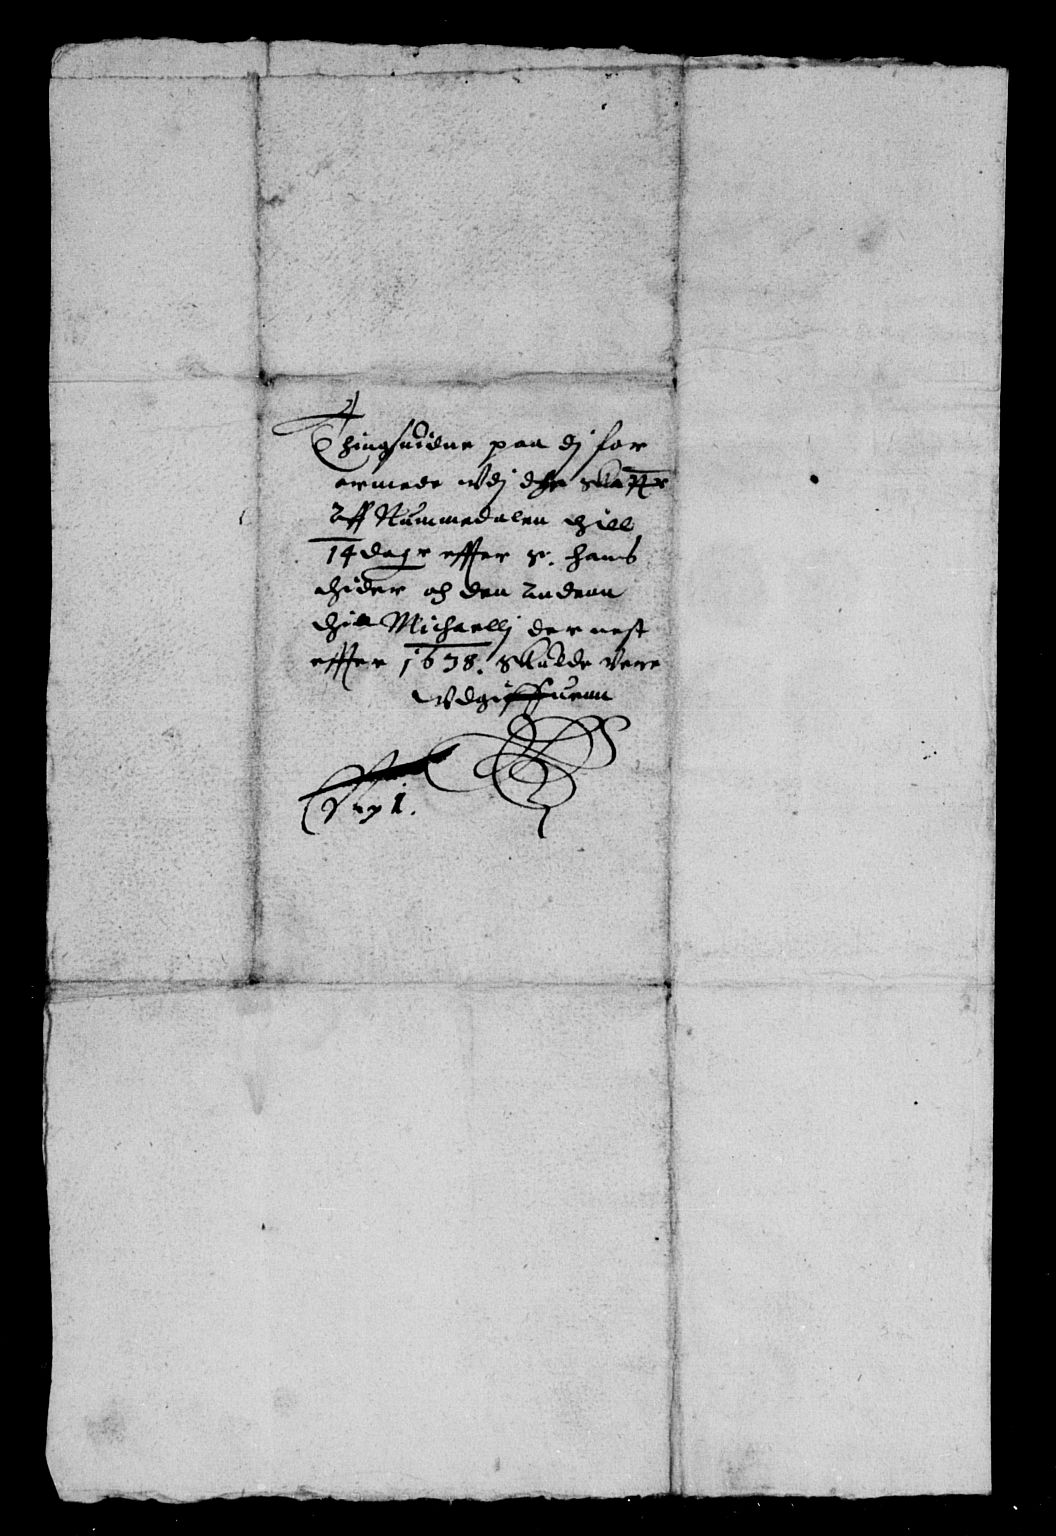 Thingsuidne paa dj for
armede vdj dße Skatter
Aff Nummedalen thill
14 dage effter S. Hans
thider och den Andenn
thill Michaellj der nest
effter 1638. Skulde vere
vdgiffuenn
1.